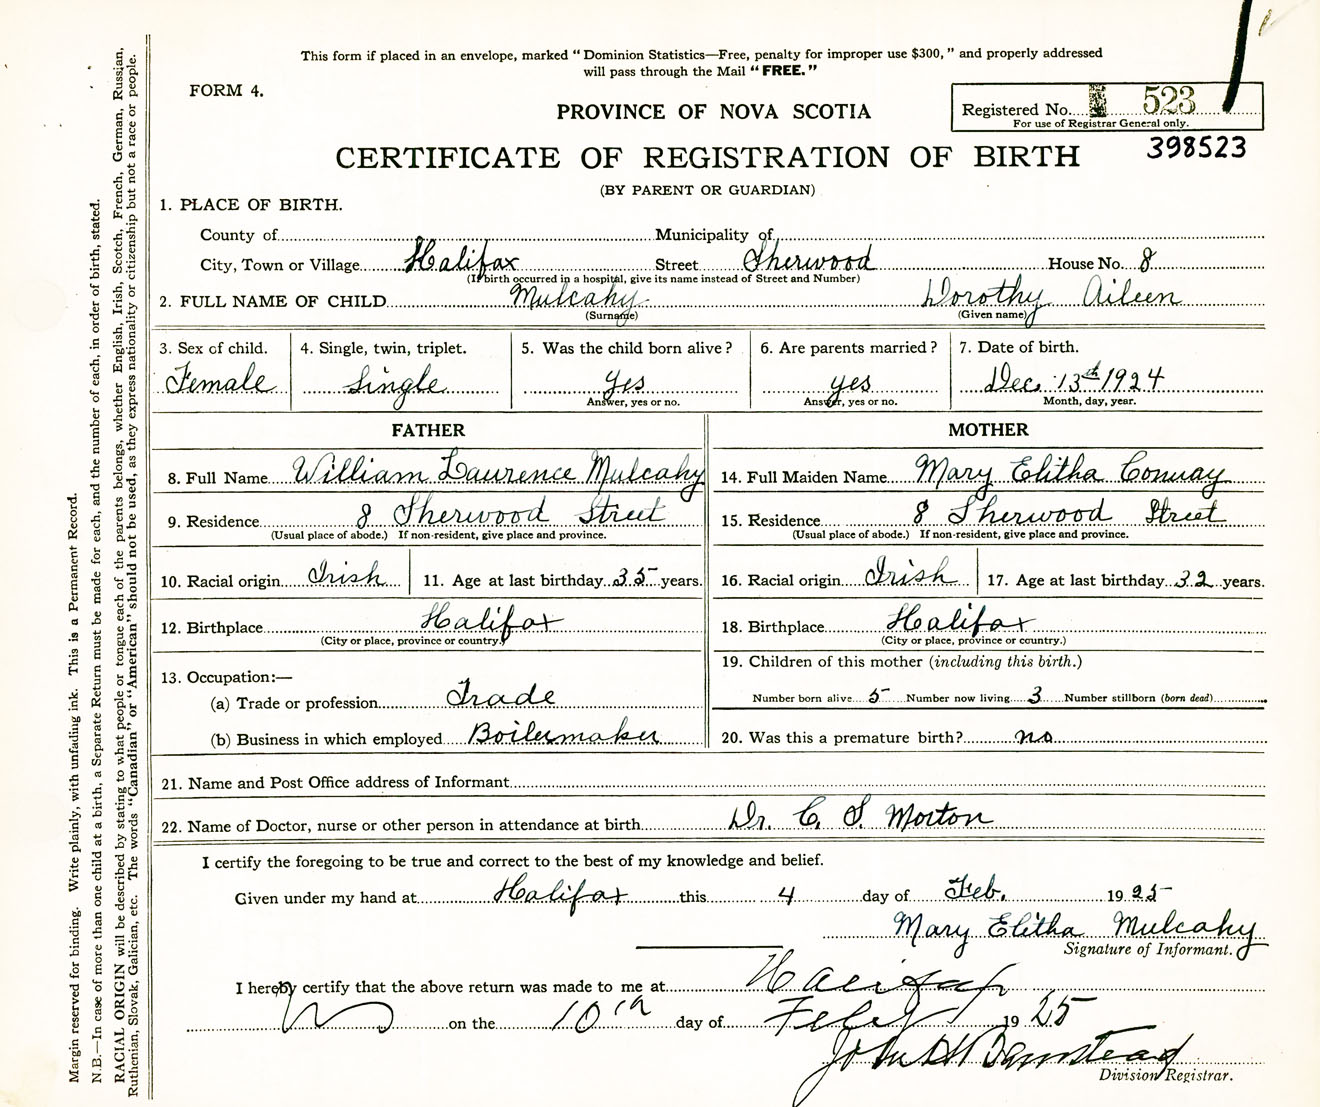 This form if placed in an envelope, marked “Dominion Statistics—Free, penalty for improper use $300,” and properly addressed
will pass through the Mail “FREE.”
FORM 4.
PROVINCE OF NOVA SCOTIA
Registered No. 523
For use of Registrar General only.
398523
CERTIFICATE OF REGISTRATION OF BIRTH
(BY PARENT OR GUARDIAN)
1. PLACE OF BIRTH.
County of Municipality of
City, Town or Village Halifax Street Sherwood House No. 8
(If birth occurred in a hospital, give its name instead of Street and Number)
2. FULL NAME OF CHILD Mulcahy Dorothy Aileen
(Surname) (Given name)
3. Sex of child. 4. Single, twin, triplet. 5. Was the child born alive? 6. Are parents married? 7. Date of birth.
Female Single yes yes Dec. 13th 1924
Answer, yes or no. Answer, yes or no. Month, day, year.
FATHER MOTHER
8. Full Name William Laurence Mulcahy 14. Full Maiden Name Mary Elitha Conway
9. Residence 8 Sherwood Street 15. Residence 8 Sherwood Street
(Usual place of abode.) If non-resident, give place and province. (Usual place of abode.) If non-resident, give place and province.
10. Racial origin Irish 11. Age at last birthday 35 years. 16. Racial origin Irish 17. Age at last birthday 32 years.
12. Birthplace Halifax 18. Birthplace Halifax
(City or place, province or country.) (City or place, province or country.)
13. Occupation:— 19. Children of this mother (including this birth.)
(a) Trade or profession Trade Number born alive 5 Number now living 3 Number stillborn (born dead)
(b) Business in which employed Boilermaker 20. Was this a premature birth? no
21. Name and Post Office address of Informant
22. Name of Doctor, nurse or other person in attendance at birth Dr. C. S. Morton
I certify the foregoing to be true and correct to the best of my knowledge and belief.
Given under my hand at Halifax this 4 day of Feb. 1925
Mary Elitha Mulcahy
Signature of Informant.
I hereby certify that the above return was made to me at Halifax
on the 10th day of Feby 1925
John
Division Registrar.
Margin reserved for binding. Write plainly, with unfading ink. This is a Permanent Record.
N.B.—In case of more than one child at a birth, a Separate Return must be made for each, and the number of each, in order of birth, stated.
RACIAL ORIGIN will be described by stating to what people or tongue each of the parents belongs, whether English, Irish, Scotch, French, German, Russian,
Ruthenian, Slovak, Galician, etc. The words “Canadian” or “American” should not be used, as they express nationality or citizenship but not a race or people.